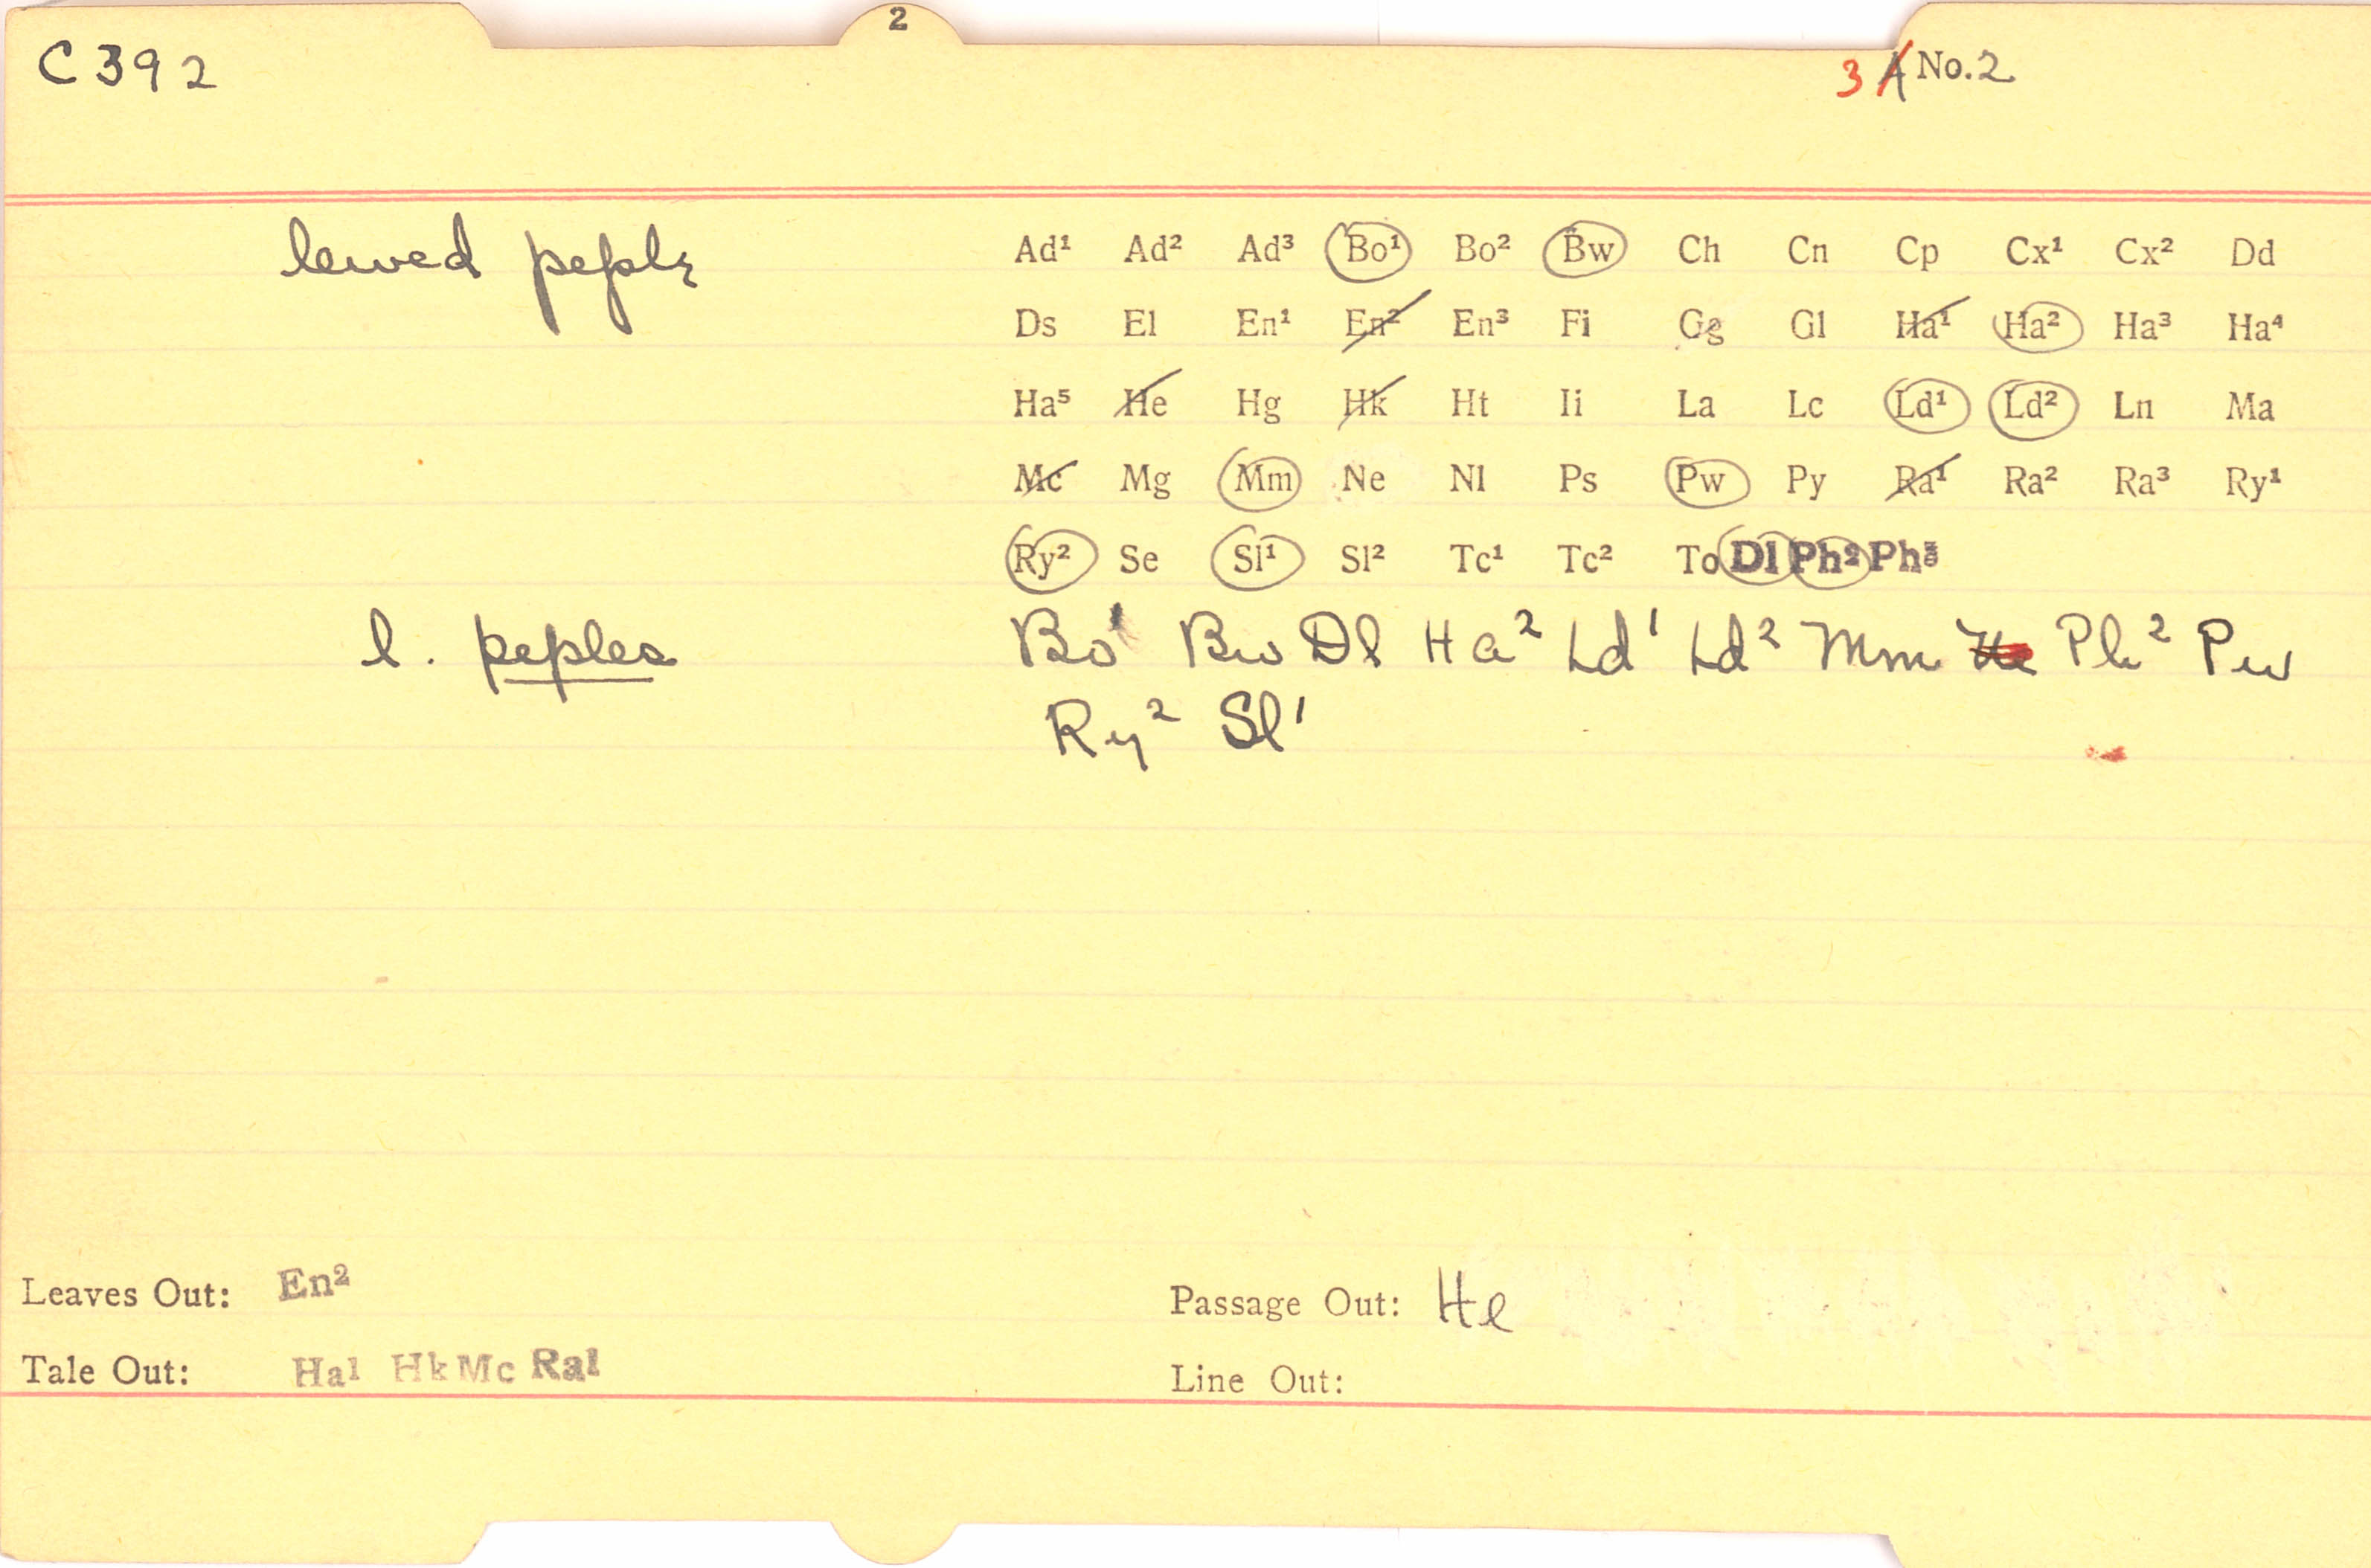 2
C392
3 A No. 2
lewed peple
Ad¹ Ad² Ad³ Bo¹ Bo² Bw Ch Cn Cp Cx¹ Cx² Dd
Ds El En¹ En² En³ Fi Gg Gl Ha¹ Ha² Ha³ Ha⁴
Ha⁵ He Hg Hk Ht Ii La Lc Ld¹ Ld² Ln Ma
Mc Mg Mm Ne Nl Ps Pw Py Ra¹ Ra² Ra³ Ry¹
Ry² Se Sl¹ Sl² Tc¹ Tc² To Dl Ph² Ph³
l. peples Bo¹ Bw Dl Ha² Ld¹ Ld² Mm Ph² Pw
Ry² Sl¹
Leaves Out: En² Passage Out: He
Tale Out: Ha¹ Hk Mc Ra¹ Line Out: